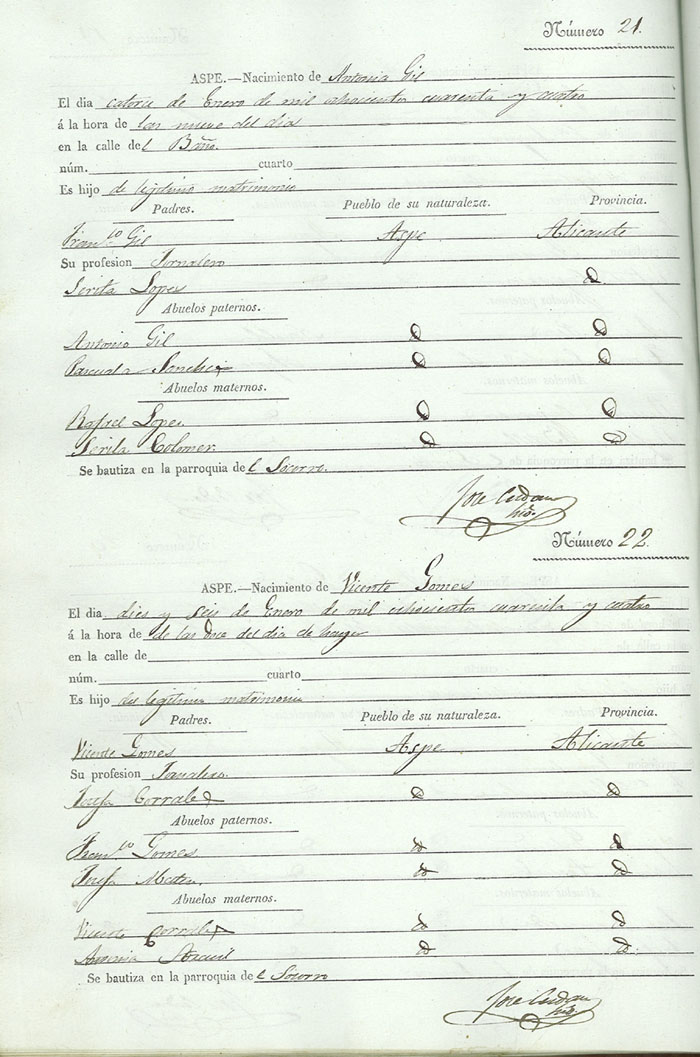 Número 21.
ASPE.—Nacimiento de Antonia Gil
El dia catorce de Enero de mil ochocientos cuarenta y cuatro
á la hora de las nueve del dia
en la calle del Baño.
núm. cuarto
Es hijo de legitimo matrimonio
Padres. Pueblo de su naturaleza. Provincia.
Franco Gil Aspe Alicante
Su profesion Jornalero
Serita Lopes D
Abuelos paternos.
Antonio Gil D D
Pascuala Sanchis D D
Abuelos maternos.
Rafael Lopes. D D
Serita Colomer. D D
Se bautiza en la parroquia del Socorro.
Jose Cerdan
Número 22.
ASPE.—Nacimiento de Vicente Gomes
El dia dies y seis de Enero de mil ochocientos cuarenta y cuatro
á la hora de de las doce del dia de hoy
en la calle de
núm. cuarto
Es hijo de legitimo matrimonio
Padres. Pueblo de su naturaleza. Provincia.
Vicente Gomes Aspe Alicante
Su profesion Jornalero.
Josefa Corrales D D
Abuelos paternos.
Franco Gomes D D
Josefa D D
Abuelos maternos.
Vicente Corrales D D
Antonia D D
Se bautiza en la parroquia del Socorro
Jose Cerdan